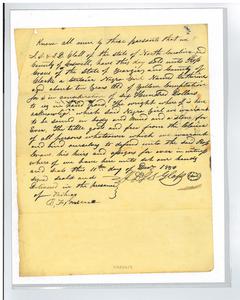 Know all men by these presents that we
J. D. & S. D. Glass of the state of North Carolina and
County of Caswell, have this day sold unto
Evans of the state of Georgia and County of
Clarke a certain Negro Girl Named Catherine
about ten years Old of Yellow Complexion
for & in consideration of Hundred Dollars
us paid the right where of is here
by acknowledge which said Negro Girl we warrant
to be sound in body and mind and a slave for
Life. The title good and free from the Claims
of all persons whatsoever which we warrant
and bind ourselves to defend unto the said
Evans, his heirs and assigns for ever in witness
where of we have here unto set our hands
and seals this 11th day of
Signed Sealed and
Delivered in the presence
of